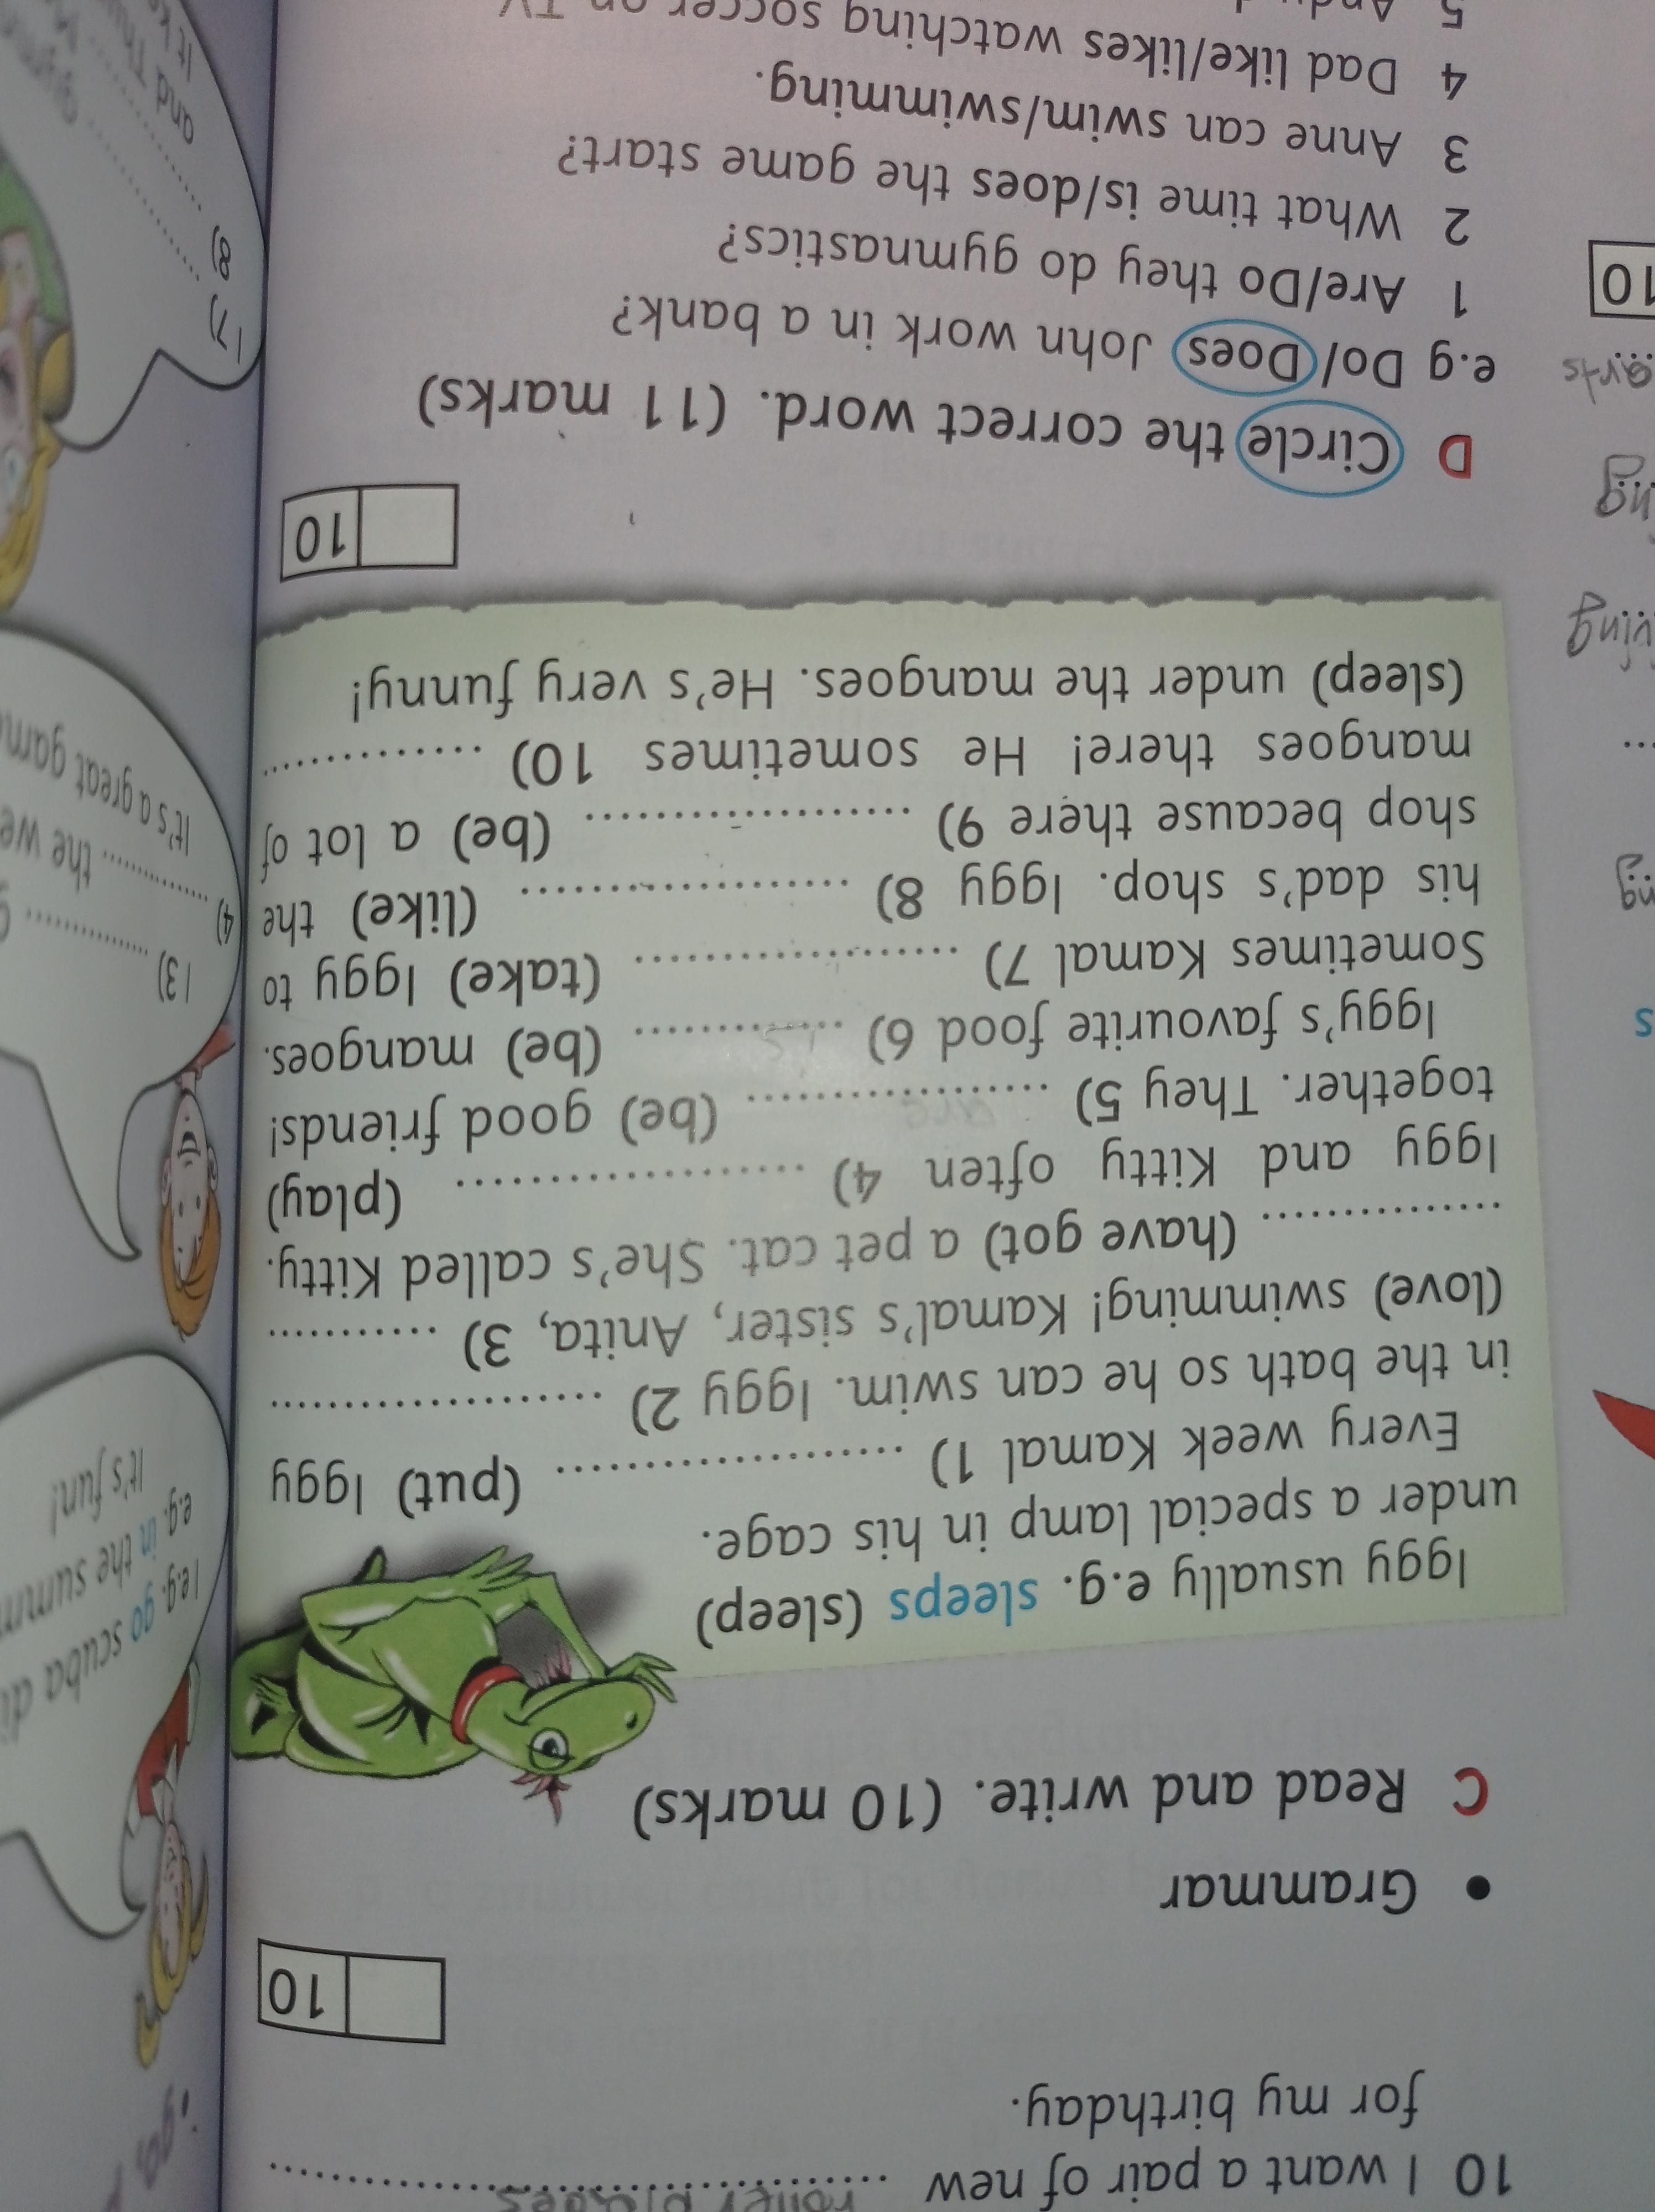 10 I want a pair of new ....................
for my birthday.
10
• Grammar
C Read and write. (10 marks)
Iggy usually e.g. sleeps (sleep)
under a special lamp in his cage.
Every week Kamal 1) .................... (put) Iggy
in the bath so he can swim. Iggy 2) ....................
(love) swimming! Kamal's sister, Anita, 3) ............
............... (have got) a pet cat. She's called Kitty.
Iggy and Kitty often 4) .................... (play)
together. They 5) are .................... (be) good friends!
Iggy's favourite food 6) is ............... (be) mangoes.
Sometimes Kamal 7) .................... (take) Iggy to
his dad's shop. Iggy 8) .................... (like) the
shop because there 9) .................... (be) a lot of
mangoes there! He sometimes 10) ...............
(sleep) under the mangoes. He's very funny!
10
D Circle the correct word. (11 marks)
e.g Do/Does John work in a bank?
1 Are/Do they do gymnastics?
2 What time is/does the game start?
3 Anne can swim/swimming.
4 Dad like/likes watching soccer on TV
5
10
arts
s
(e.g. go scuba
e.g. in the
It's fun!
(3) ...............
4) ............... the
It's a great
(7) ...............
8) ...............
and
It